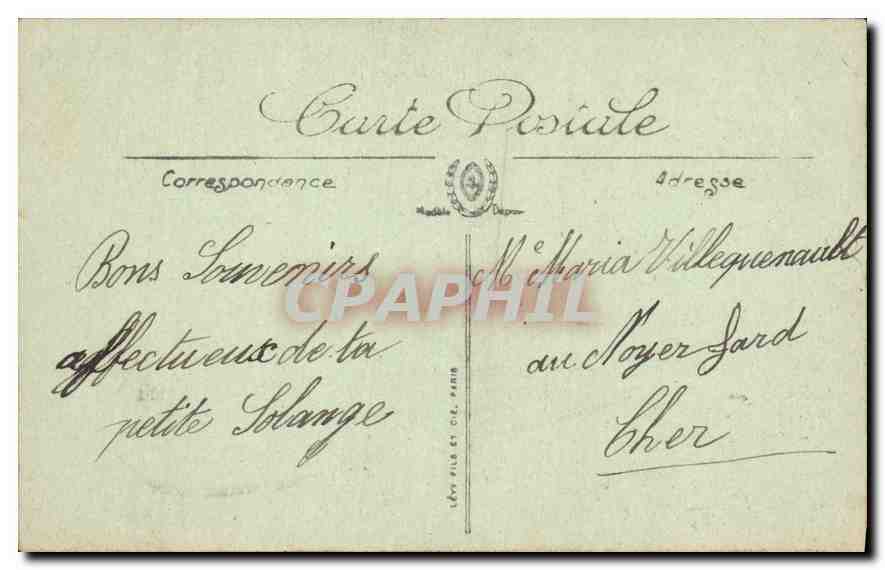 Carte Postale
Correspondance
Adresse
Modèle Déposé
Bons Souvenirs
affectueux de ta
petite Solange
Me Maria Villequenault
au Noyer Gard
Cher
LÉVY FILS ET CIE, PARIS
CPAPHIL